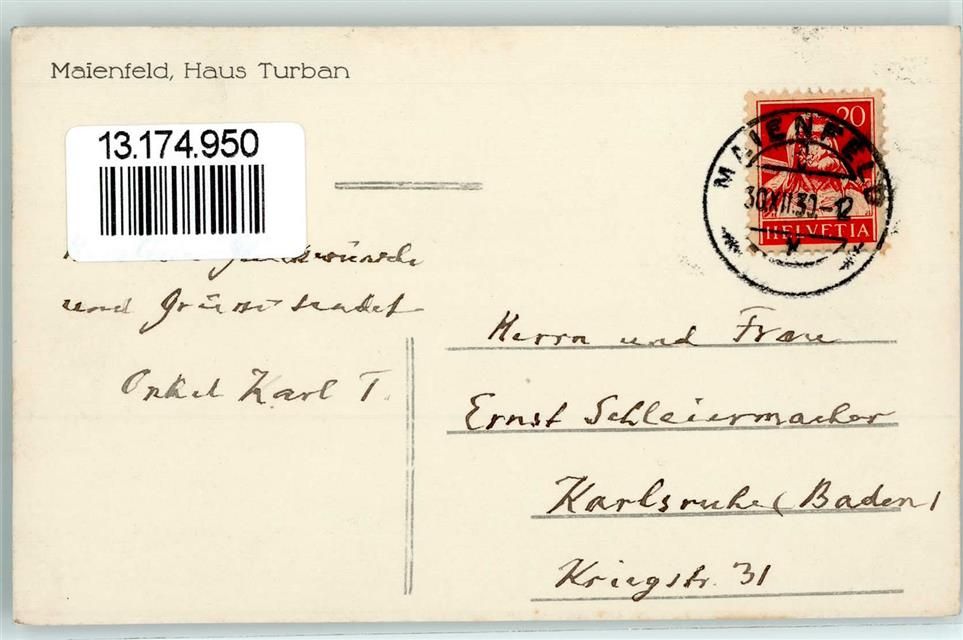 Maienfeld, Haus Turban
13.174.950
20
MAIENFELD
30.XII.30.-12
HELVETIA
Glückwünsche
und Grüsse sendet
Onkel Karl T.
Herrn und Frau
Ernst Schleiermacher
Karlsruhe (Baden)
Kriegstr. 31